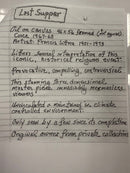 Last Supper
Oil on canvas 48 x 56 framed
Circa 1967-68
Artist: Francis
Artist's personal interpretation of this
iconic, historical religious event
Provocative, compelling, controversial
This stunning three dimensional
master piece, invariably mesmerizes
viewers
Warehoused & maintained in climate
controlled environment
Only seen by a few since its completion
Original owner from private collection